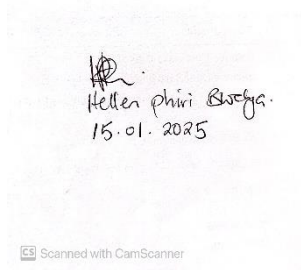 Hellen phiri Bwalya.
15.01.2025
CS Scanned with CamScanner